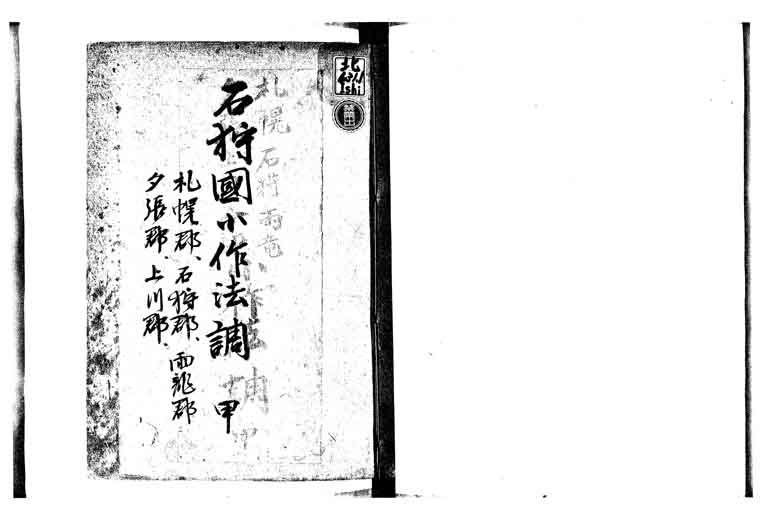 石狩國小作法調 甲
札幌郡、石狩郡、雨龍郡
夕張郡、上川郡、
札幌 石狩 雨竜、
北
Ishi
禁帯出